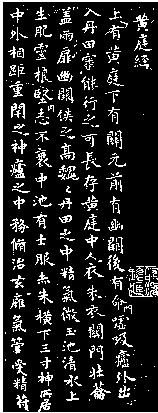 黄庭經
上有黄庭下有關元前有幽闕後有命門噓吸廬外出
入丹田審能行之可長存黄庭中人衣朱衣關門壯籥
蓋兩扉幽闕俠之高巍巍丹田之中精氣微玉池清水上
生肥靈根堅志不衰中池有士服赤朱横下三寸神所居
中外相距重閉之神廬之中務脩治玄㢕氣管受精符